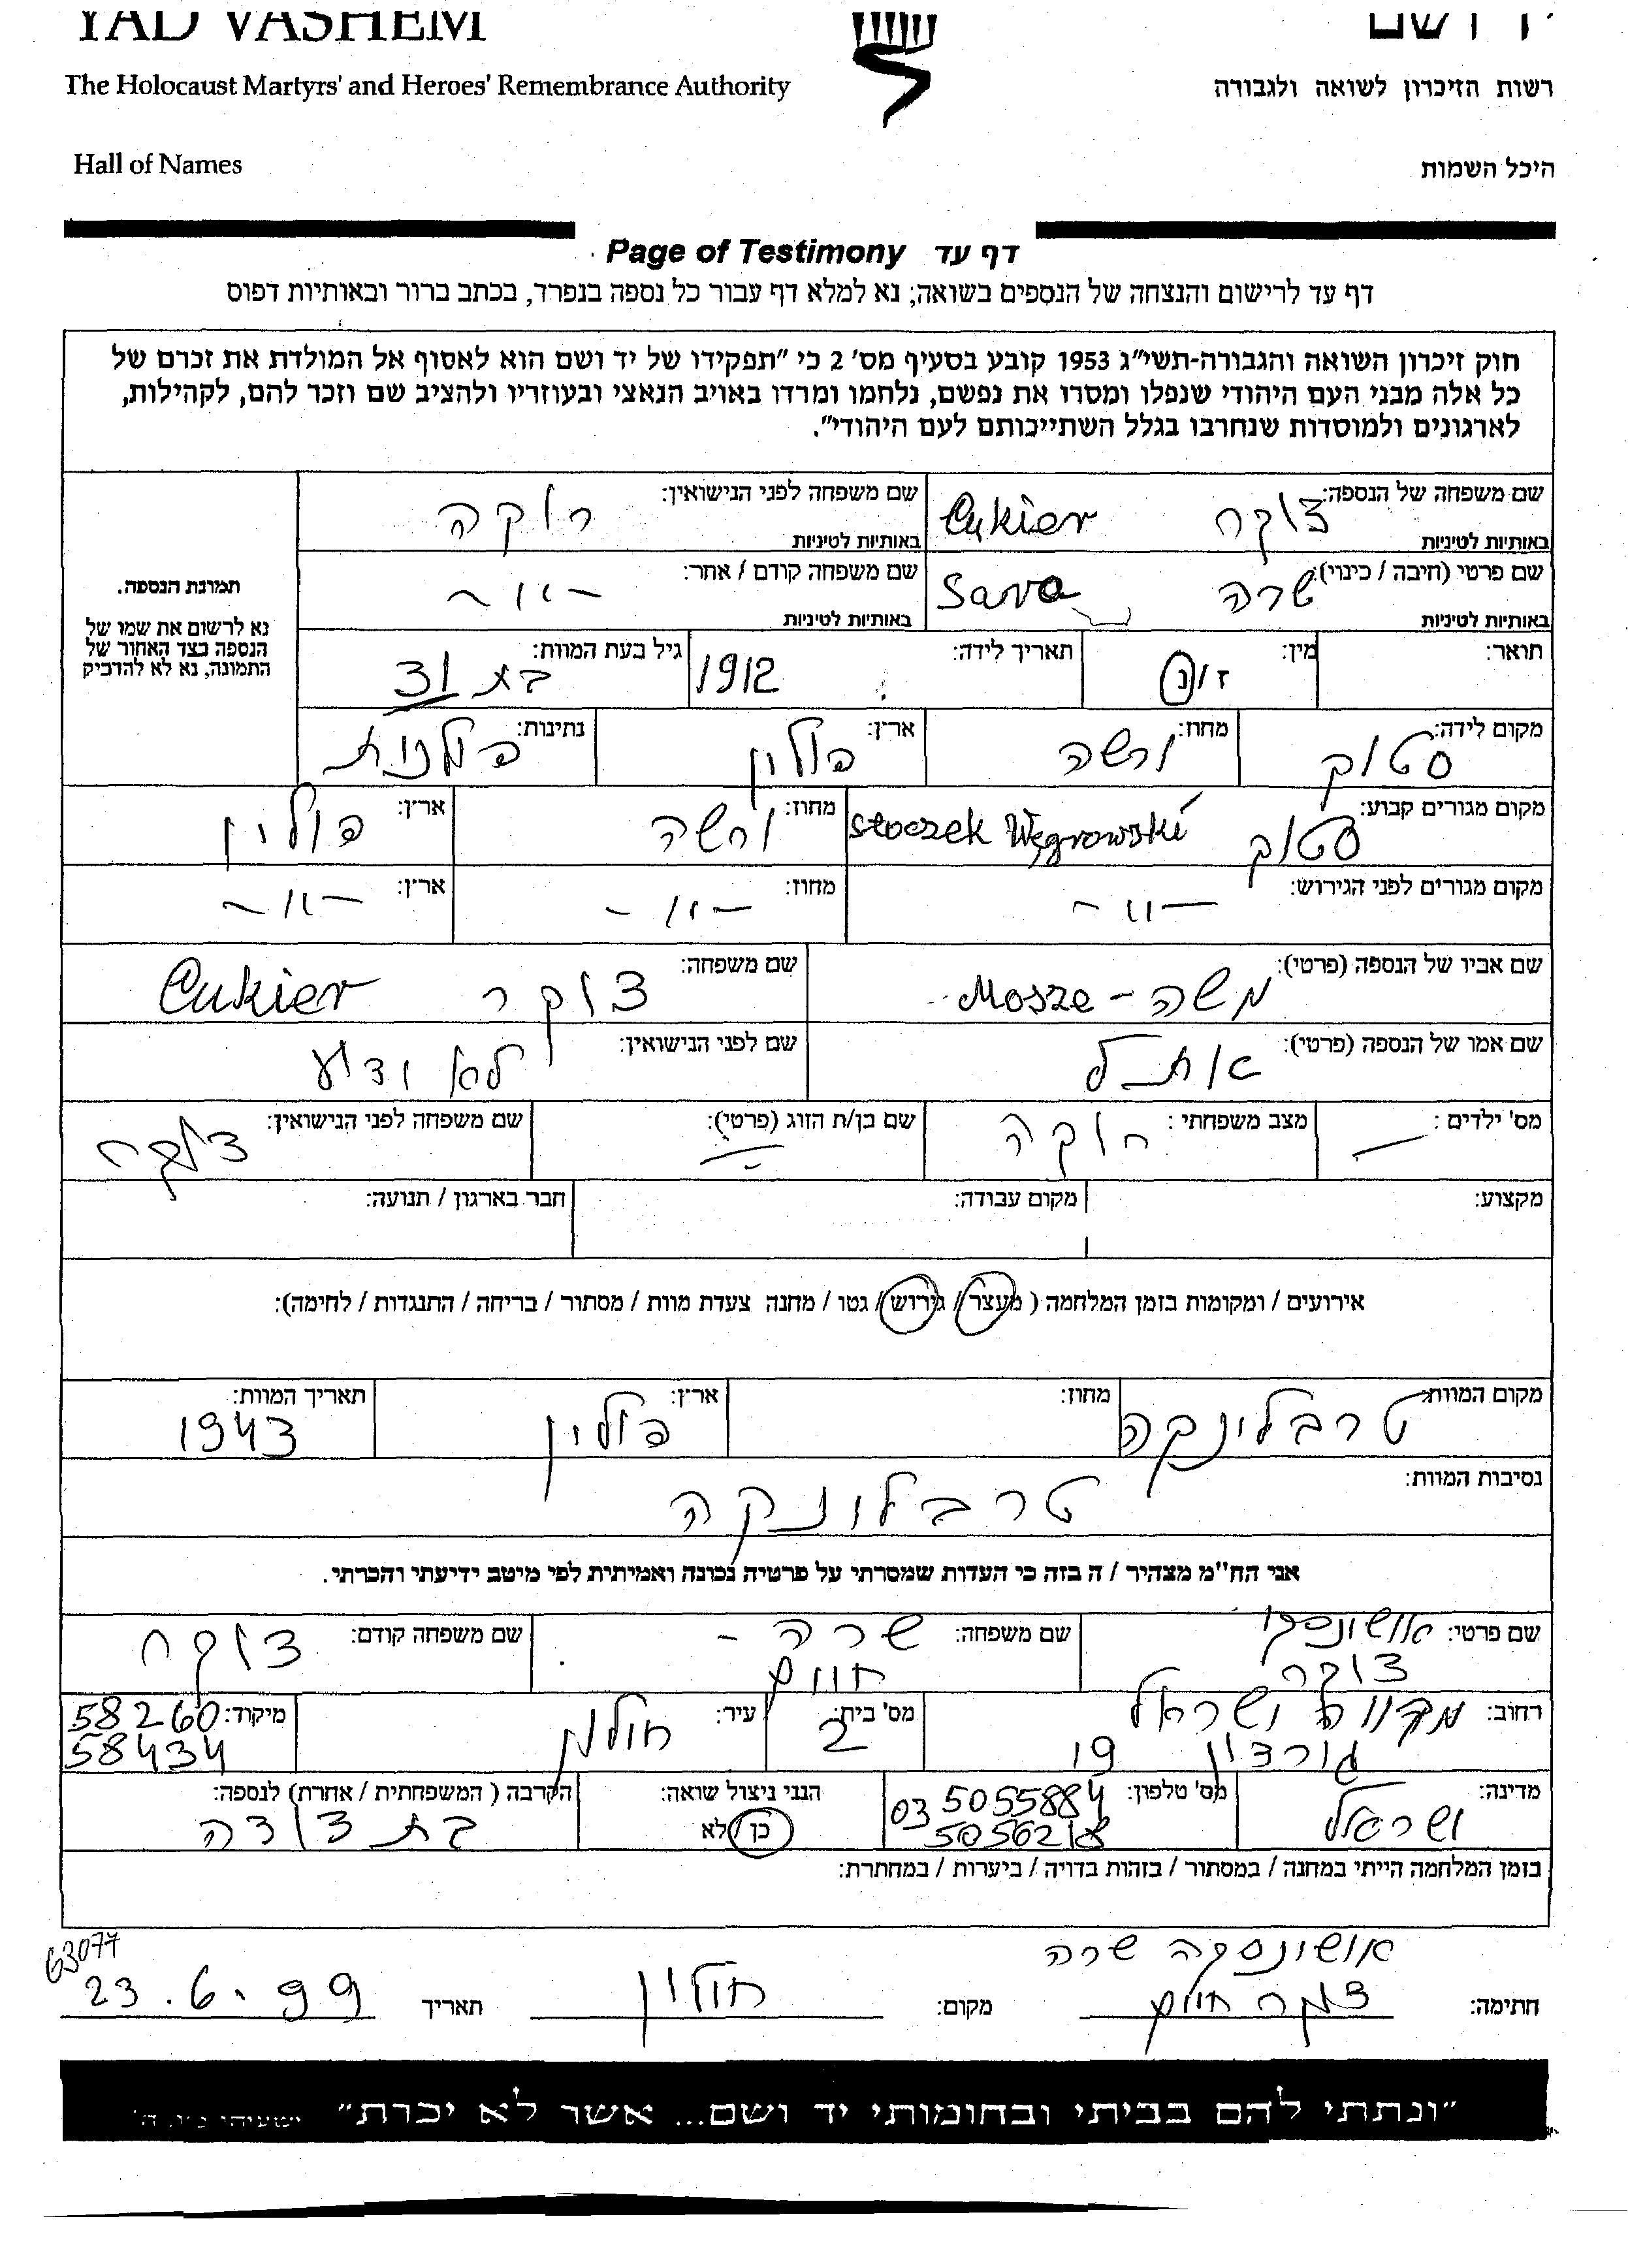 YAD VASHEM
יד ושם
The Holocaust Martyrs' and Heroes' Remembrance Authority
רשות הזיכרון לשואה ולגבורה
Hall of Names
היכל השמות
Page of Testimony דף עד
דף עד לרישום והנצחה של הנספים בשואה; נא למלא דף עבור כל נספה בנפרד, בכתב ברור ובאותיות דפוס
חוק זיכרון השואה והגבורה-תשי"ג 1953 קובע בסעיף מס' 2 כי "תפקידו של יד ושם הוא לאסוף אל המולדת את זכרם של
כל אלה מבני העם היהודי שנפלו ומסרו את נפשם, נלחמו ומרדו באויב הנאצי ובעוזריו ולהציב שם וזכר להם, לקהילות,
לארגונים ולמוסדות שנחרבו בגלל השתייכותם לעם היהודי".
שם משפחה של הנספה: צוקר Cukier
באותיות לטיניות
שם משפחה לפני הנישואין: רוקה
באותיות לטיניות
שם פרטי (חיבה / כינוי): שרה Sara
באותיות לטיניות
שם משפחה קודם / אחר: -"-
באותיות לטיניות
תמונת הנספה.
נא לרשום את שמו של
הנספה בצד האחור של
התמונה, נא לא להדביק
תואר:
מין: ז / נ
תאריך לידה: 1912
גיל בעת המוות: בת 31
מקום לידה: סטוק
מחוז: ורשה
ארץ: פולין
נתינות: פולנית
מקום מגורים קבוע: סטוק Stoczek Węgrowski
מחוז: ורשה
ארץ: פולין
מקום מגורים לפני הגירוש: -"-
מחוז: -"-
ארץ: -"-
שם אביו של הנספה (פרטי): משה - Mosze
שם משפחה: צוקר Cukier
שם אמו של הנספה (פרטי): אתל
שם לפני הנישואין: לא ידוע
מס' ילדים: —
מצב משפחתי: רוקה
שם בן/ת הזוג (פרטי): —
שם משפחה לפני הנישואין: צוקר
מקצוע:
מקום עבודה:
חבר בארגון / תנועה:
אירועים / ומקומות בזמן המלחמה ( מעצר / גירוש / גטו / מחנה צעדת מוות / מסתור / בריחה / התנגדות / לחימה):
מקום המוות: טרבלינקה
מחוז:
ארץ: פולין
תאריך המוות: 1943
נסיבות המוות: טרבלינקה
אני הח"מ מצהיר / ה בזה כי העדות שמסרתי על פרטיה נכונה ואמיתית לפי מיטב ידיעתי והכרתי.
שם פרטי: אושינסקי
צוקר
שם משפחה: שרה -
חיים
שם משפחה קודם: צוקר
רחוב: מקווה ישראל
גורדון 19
מס' בית: 2
עיר: חולון
מיקוד: 58260
58434
מדינה: ישראל
מס' טלפון: 03 5055884
5056218
הנני ניצול שואה:
כן / לא
הקרבה ( המשפחתית / אחרת) לנספה:
בת דודה
בזמן המלחמה הייתי במחנה / במסתור / בזהות בדויה / ביערות / במחתרת:
63077
אושינסקה שרה
חתימה: צוקר חיים
מקום: חולון
תאריך 23.6.99
"ונתתי להם בביתי ובחומותי יד ושם... אשר לא יכרת" ישעיהו נ"ו, ה'